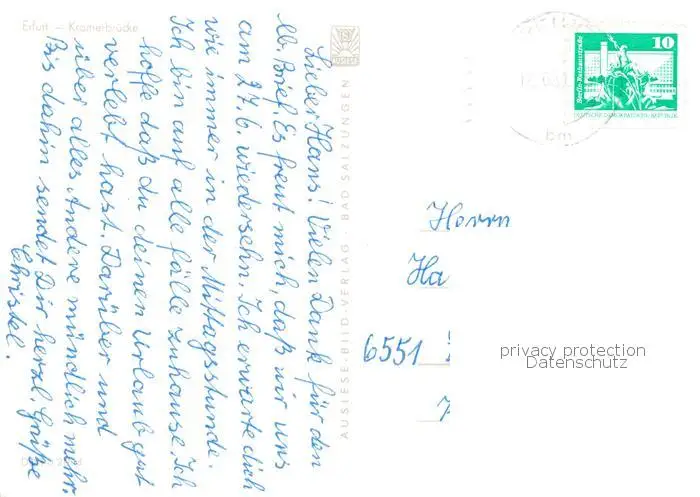 Erfurt - Krämerbrücke
Lieber Hans! Vielen Dank für den
lb. Brief. Es freut mich, daß wir uns
am 27.6. wiedersehn. Ich erwarte dich
wie immer in der Mittagsstunde.
Ich bin auf alle fälle zuhause. Ich
hoffe daß du deinen Urlaub gut
verlebt hast. Darüber und
über alles Andere mündlich mehr.
Bis dahin sendet Dir herzl. Grüße
Christel.
AUSLESE-BILD-VERLAG · BAD SALZUNGEN
10
Berlin-Rathausstraße
DEUTSCHE DEMOKRATISCHE REPUBLIK
Herrn
Ha
6551
privacy protection
Datenschutz